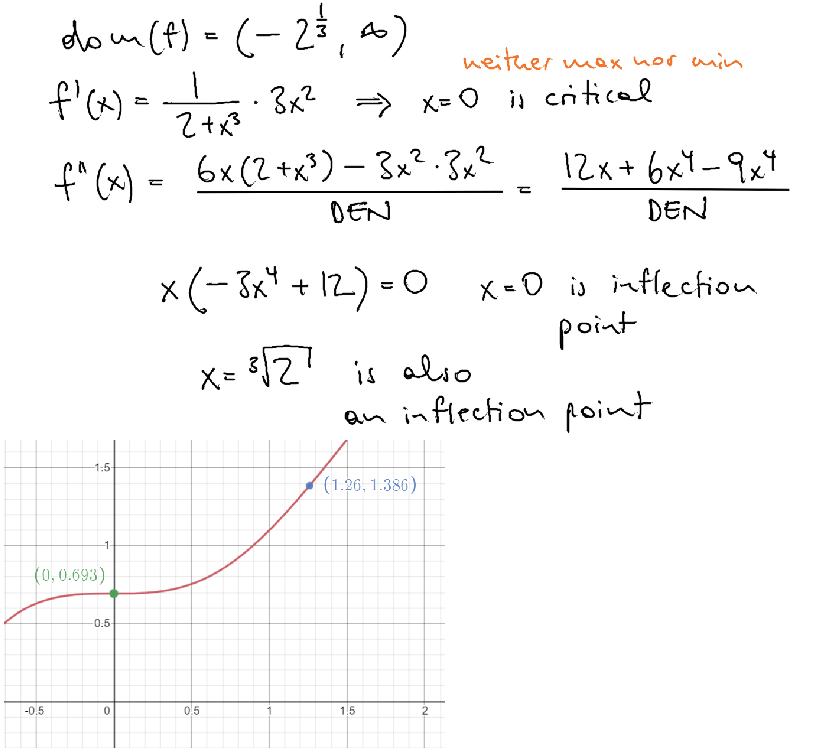 dom(f) = (-2^{1/3}, ∞)
neither max nor min
f'(x) = 1/(2+x³) · 3x² ⇒ x=0 is critical
f"(x) = (6x(2+x³) - 3x²·3x²)/DEN = (12x + 6x⁴ - 9x⁴)/DEN
x(-3x⁴ + 12) = 0 x=0 is inflection
point
x = ∛2 is also
an inflection point
1.5
(1.26, 1.386)
1
(0, 0.693)
0.5
-0.5 0 0.5 1 1.5 2